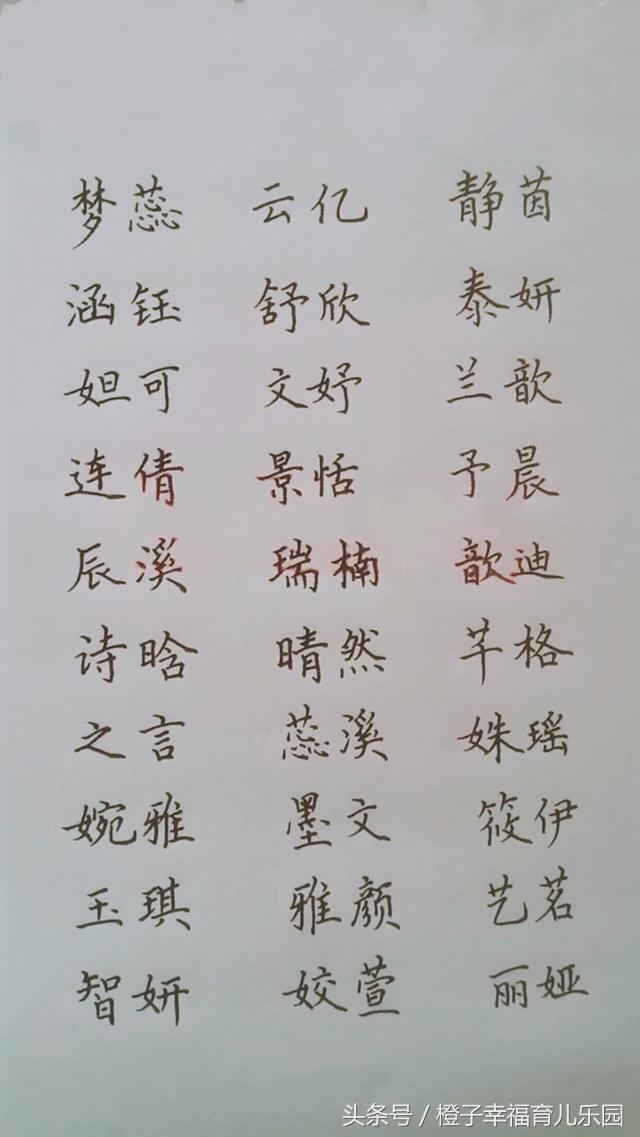 梦蕊 云亿 静茵
涵钰 舒欣 泰妍
妲可 文妤 兰歆
连倩 景恬 予晨
辰溪 瑞楠 歆迪
诗晗 晴然 芊格
之言 蕊溪 姝瑶
婉雅 墨文 筱伊
玉琪 雅颜 艺茗
智妍 姣萱 丽娅
头条号／橙子幸福育儿乐园